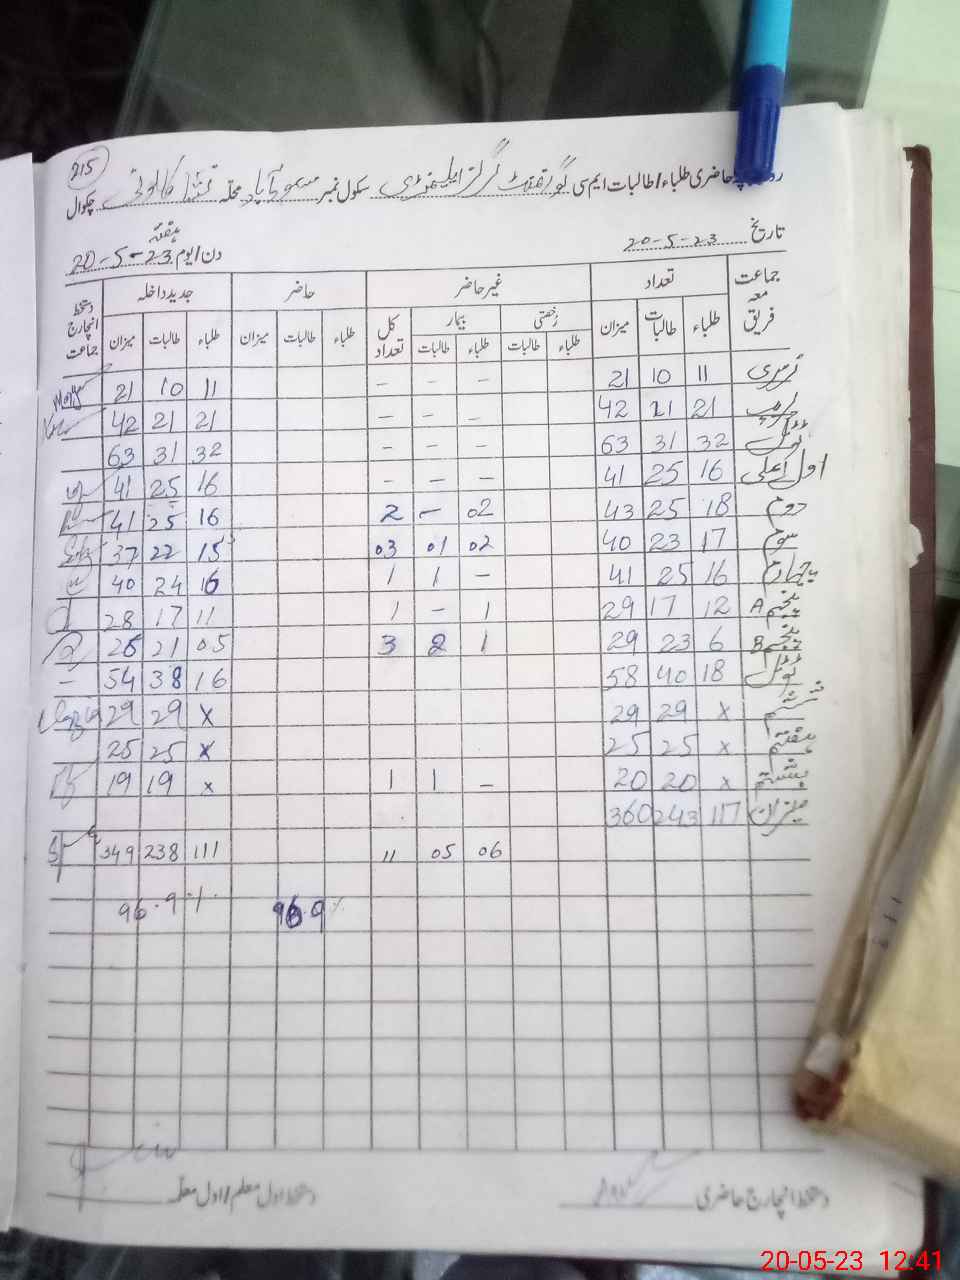 215
روزنامچہ حاضری طلباء/طالبات ایم سی گورنمنٹ گرلز ایلیمنٹری سکول نمبر محلہ چکوال
تاریخ 20-5-23 دن/یوم ہفتہ 20-5-23
جماعت معہ فریق تعداد غیر حاضر حاضر جدید داخلہ دستخط انچارج جماعت
طلباء طالبات میزان رخصتی بیمار کل تعداد طلباء طالبات میزان طلباء طالبات میزان
طلباء طالبات طلباء طالبات
نرسری 11 10 21 - - - 11 10 21
21 21 42 - - - 21 21 42
ٹوٹل 32 31 63 - - - 32 31 63
اول اعلی 16 25 41 - - - 16 25 41
دوم 18 25 43 02 - 2 16 25 41
سوم 17 23 40 02 01 03 15 22 37
چہارم 16 25 41 - 1 1 16 24 40
پنجم A 12 17 29 1 - 1 11 17 28
پنجم B 6 23 29 1 2 3 05 21 26
ٹوٹل 18 40 58 16 38 54 -
ششم x 29 29 x 29 29
ہفتم x 25 25 x 25 25
ہشتم x 20 20 - 1 1 x 19 19
میزان 117 243 360
06 05 11 111 238 349
96.9% 96.9%
دستخط انچارج حاضری دستخط اول معلم/اول معلمہ
20-05-23 12:41